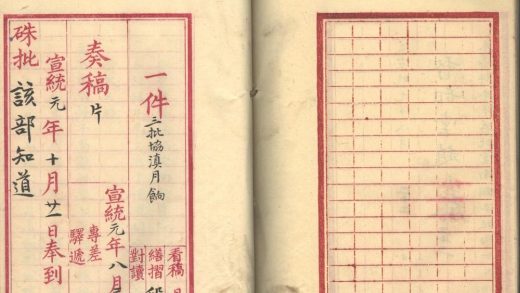 一件三批協滇月餉
看稿
繕摺
對讀
奏稿片
宣統元年八月
專差
驛遞
宣統元年十月廿一日奉到
硃批該部知道